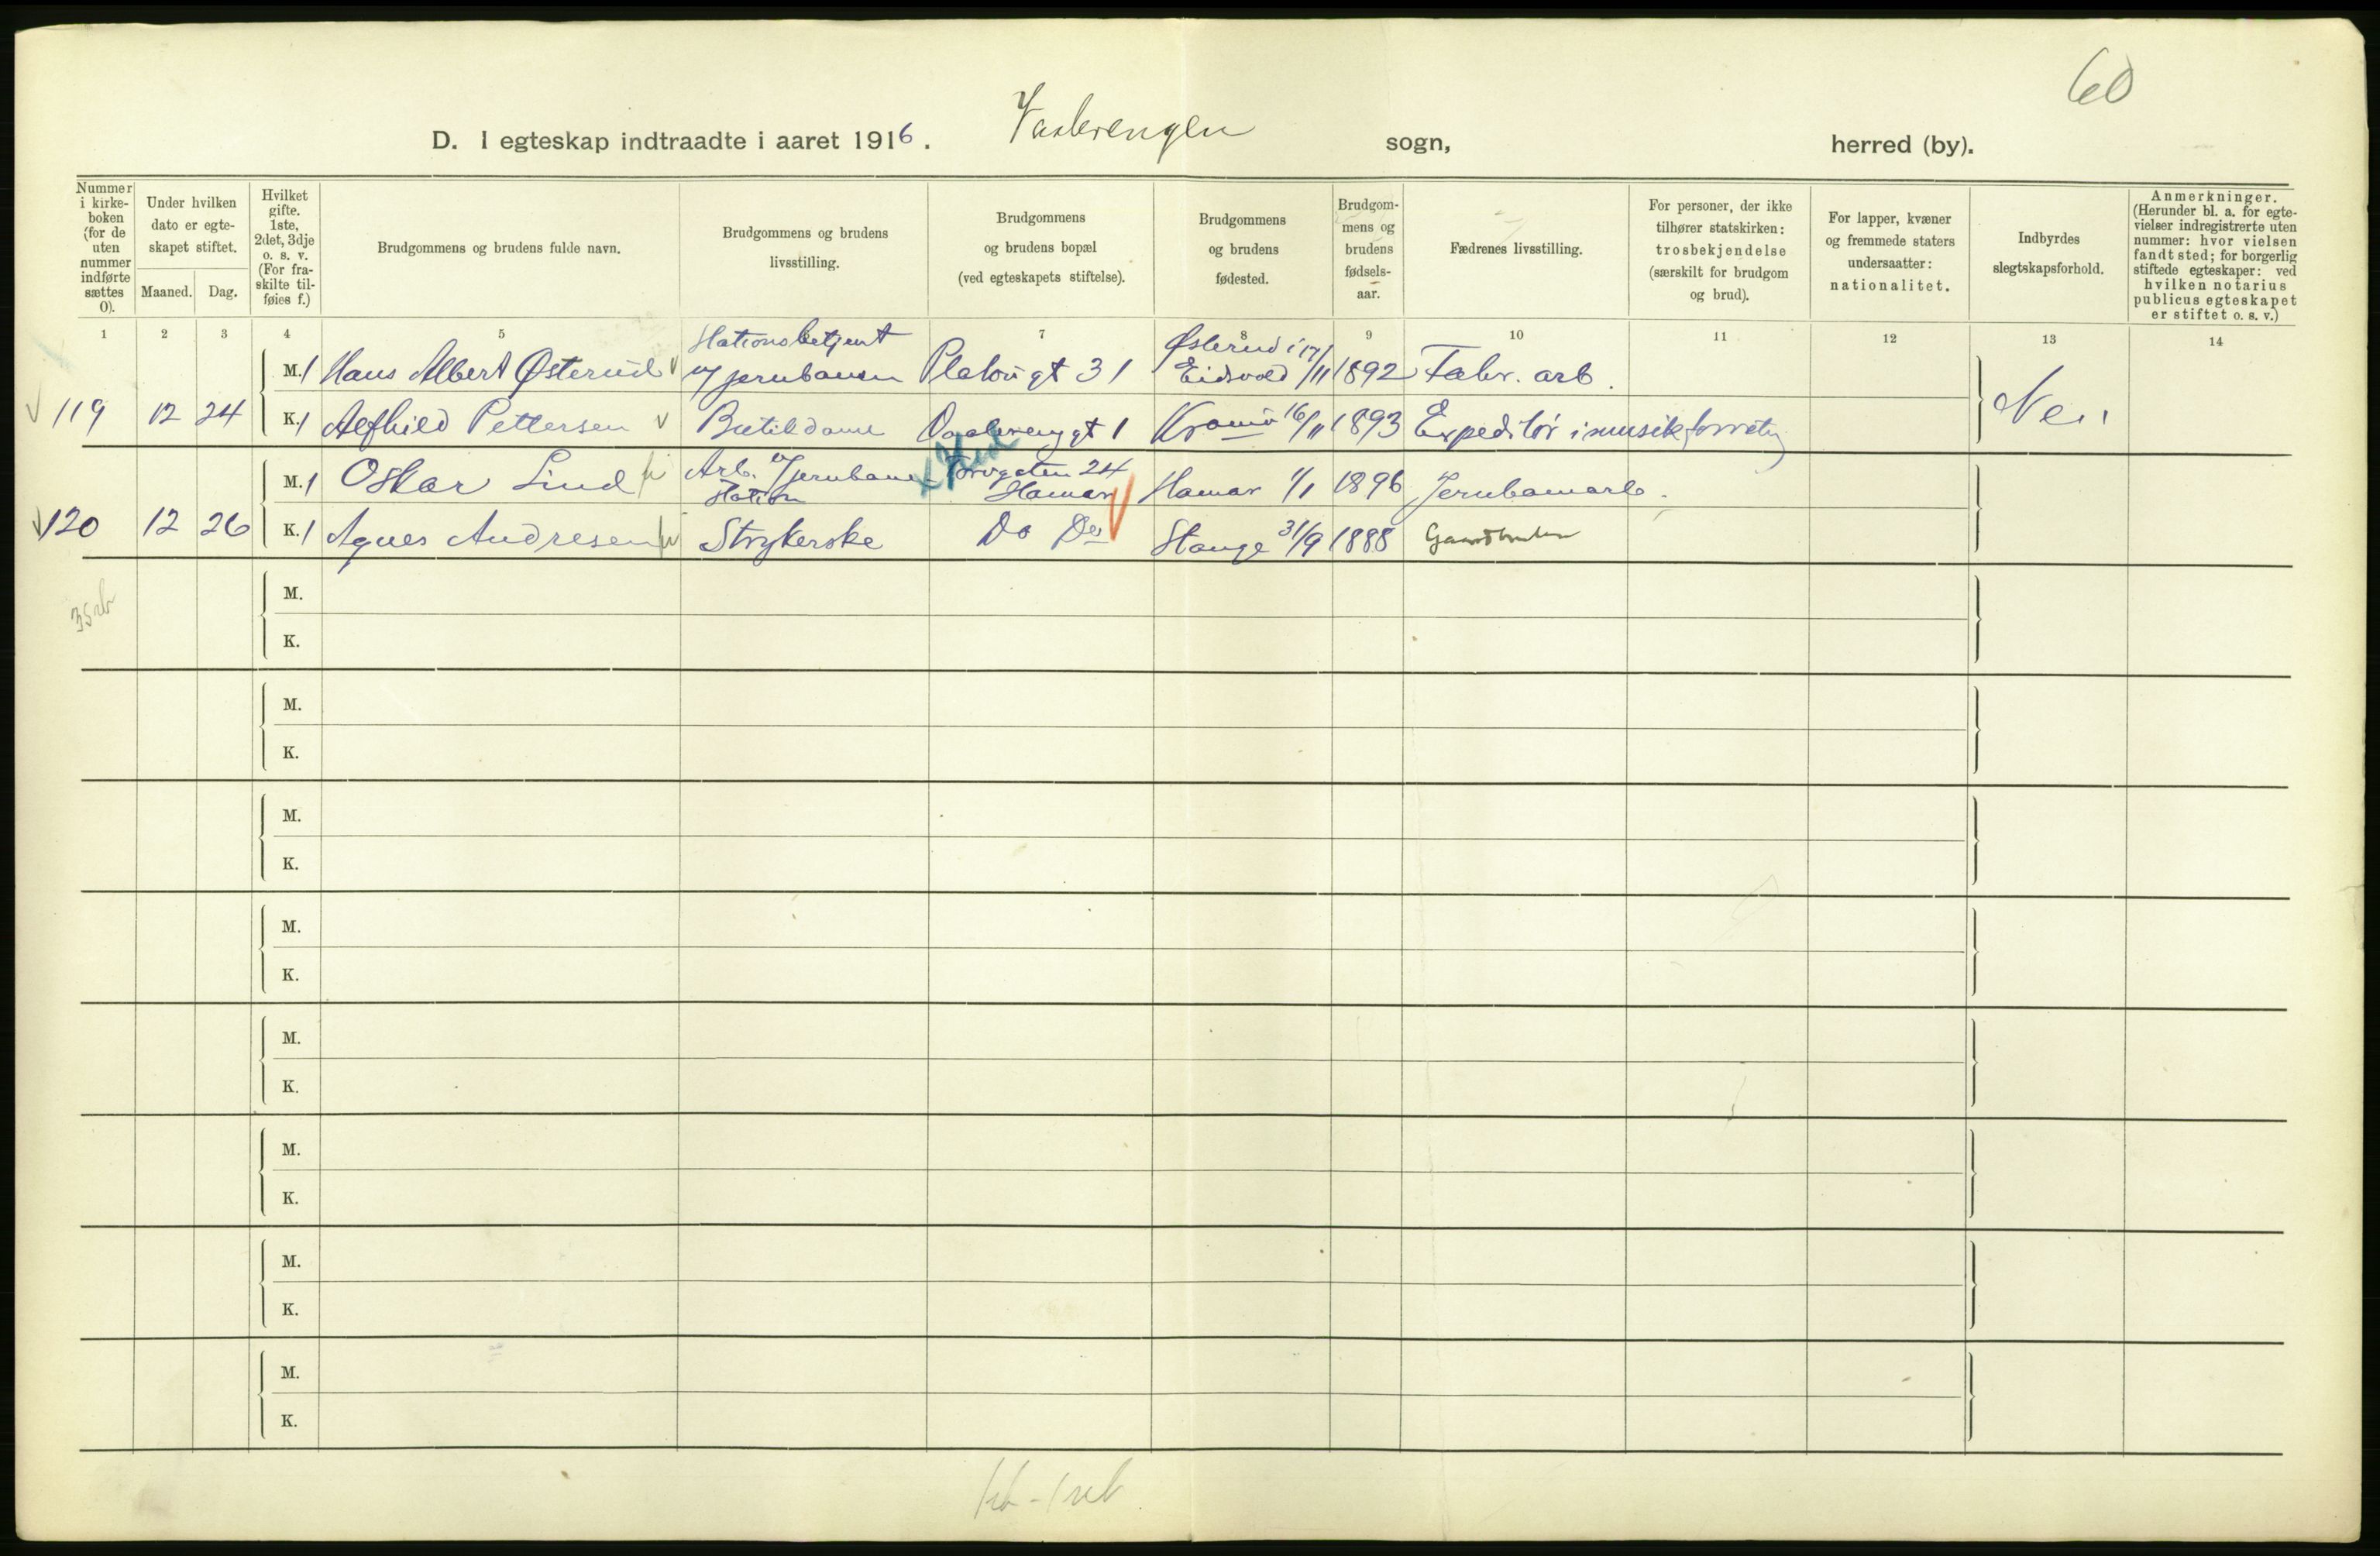 60
D. I egteskap indtraadte i aaret 1916. Vaalerengen sogn, herred (by).
Nummer i kirke-boken (for de uten nummer indførte sættes 0).
Under hvilken dato er egte-skapet stiftet.
Maaned. Dag.
Hvilket gifte. 1ste, 2det, 3dje o. s. v. (For fra-skilte til-føies f.)
Brudgommens og brudens fulde navn.
Brudgommens og brudens livsstilling.
Brudgommens og brudens bopæl (ved egteskapets stiftelse).
Brudgommens og brudens fødested.
Brudgom-mens og brudens fødsels-aar.
Fædrenes livsstilling.
For personer, der ikke tilhører statskirken: trosbekjendelse (særskilt for brudgom og brud).
For lapper, kvæner og fremmede staters undersaatter: nationalitet.
Indbyrdes slegtskapsforhold.
Anmerkninger. (Herunder bl. a. for egte-vielser indregistrerte uten nummer: hvor vielsen fandt sted; for borgerlig stiftede egteskaper: ved hvilken notarius publicus egteskapet er stiftet o. s. v.)
1 2 3 4 5 7 8 9 10 11 12 13 14
Stationsbetjent Østerud i 17/11
M. 1 Hans Albert Østerud v/ jernbanen Platougt 31 Eidsvold 1892 Fabr. arb.
119 12 24 K. 1 Alfhild Pettersen Butikdame Vaalerenggt 1 Kra 16/11 1893 Expeditør i musikforretn Nei
M. 1 Oskar Lind Arb. v/ Jernbane Station Torvgaten 24 Hamar Hamar 1/1 1896 Jernbanearb.
120 12 26 K. 1 Agnes Andresen Strykerske Do Do Stange 31/9 1888 Gaardbruker
M.
K.
M.
K.
M.
K.
M.
K.
M.
K.
M.
K.
M.
K.
M.
K.